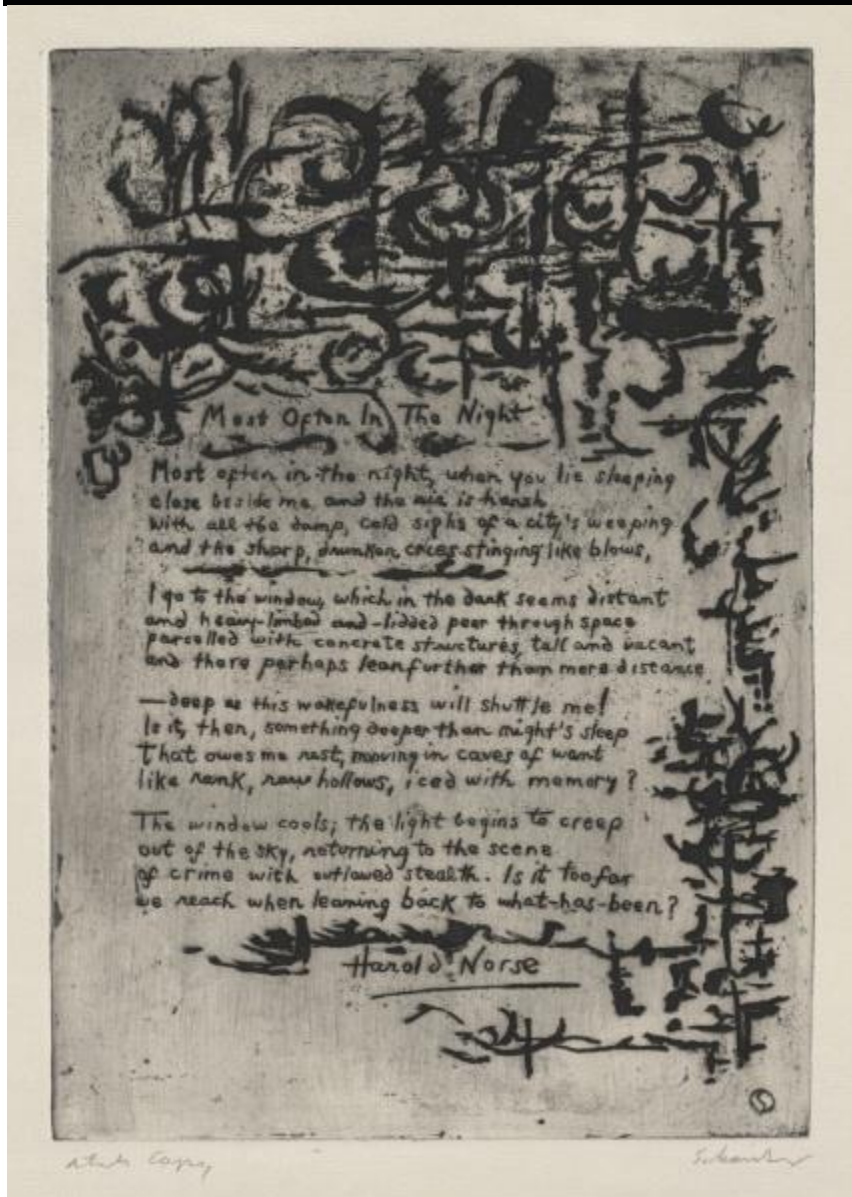 Most Often In The Night
Most often in the night, when you lie sleeping
close beside me and the air is harsh
with all the damp, cold sighs of a city's weeping
and the sharp, drunken cries stinging like blows,
I go to the window, which in the dark seems distant
and heavy-limbed and -lidded peer through space
parcelled with concrete structures, tall and vacant
and there perhaps lean further than mere distance
—deep as this wakefulness will shuttle me!
Is it, then, something deeper than night's sleep
That owes me rest, moving in caves of want
like rank, raw hollows, iced with memory?
The window cools; the light begins to creep
out of the sky, returning to the scene
of crime with outlawed stealth. Is it too far
we reach when leaning back to what-has-been?
Harold Norse